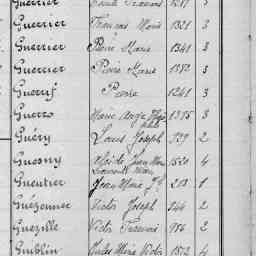 Guerrier
Guerrier François Marie 1321 3
Guerrier Pierre Marie 1341 3
Guerrier Pierre Marie 1372 3
Guerrif Pierre 1241 3
Guerro Marie Ange 1375 3
Guéry Louis Joseph 729 2
Guesny Jean Marie 1520 4
Gueutier Jean Marie 213 1
Guezennec Victor Joseph 744 2
Guezille Victor Francois 956 2
Gublin Jules Marie Victor 1572 4